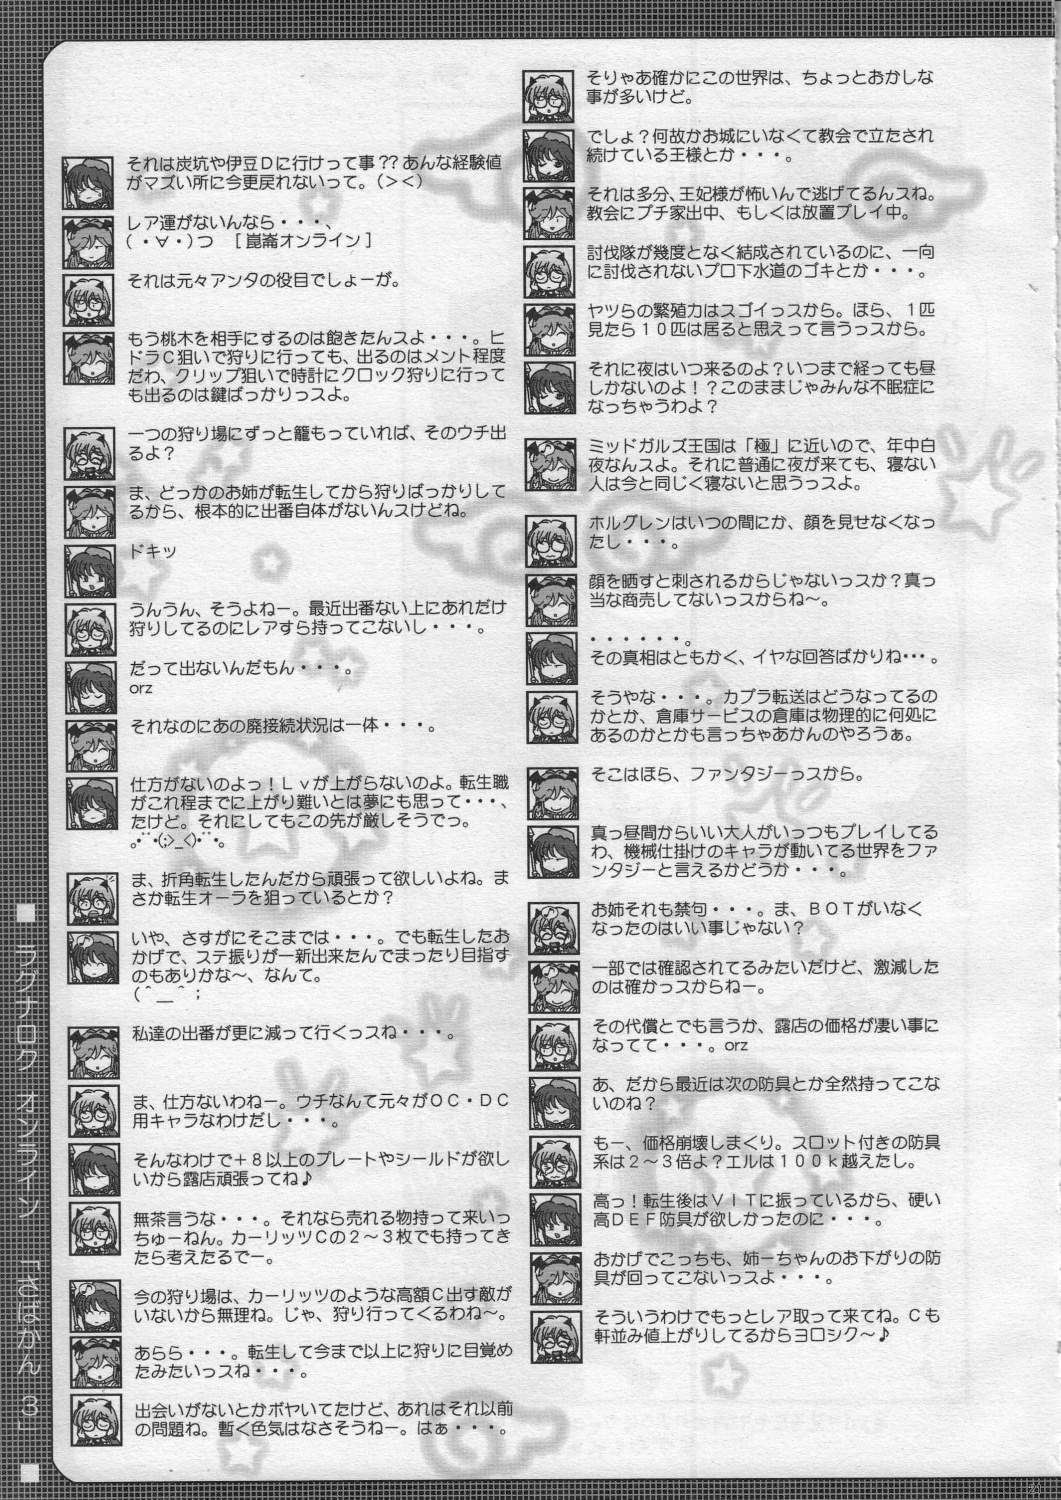 それは炭坑や伊豆Dに行けって事??あんな経験値
がマズい所に今更戻れないって。(><)
レア運がないんなら・・・、
(・∀・)つ　[崑崙オンライン]
それは元々アンタの役目でしょーが。
もう桃木を相手にするのは飽きたんスよ・・・。ヒ
ドラC狙いで狩りに行っても、出るのはメント程度
だわ、クリップ狙いで時計にクロック狩りに行って
も出るのは鍵ばっかりっスよ。
一つの狩り場にずっと籠もっていれば、そのウチ出
るよ?
ま、どっかのお姉が転生してから狩りばっかりして
るから、根本的に出番自体がないんスけどね。
ドキッ
うんうん、そうよねー。最近出番ない上にあれだけ
狩りしてるのにレアすら持ってこないし・・・。
だって出ないんだもん・・・。
orz
それなのにあの廃接続状況は一体・・・。
仕方がないのよっ!Lvが上がらないのよ。転生職
がこれ程までに上がり難いとは夢にも思って・・・、
たけど。それにしてもこの先が厳しそうでっ。
｡･ﾞ･(;>_<)･ﾞ･｡
ま、折角転生したんだから頑張って欲しいよね。ま
さか転生オーラを狙っているとか?
いや、さすがにそこまでは・・・。でも転生したお
かげで、ステ振りが一新出来たんでまったり目指す
のもありかな〜、なんて。
(＾＿＾;
私達の出番が更に減って行くっスね・・・。
ま、仕方ないわねー。ウチなんて元々がOC・DC
用キャラなわけだし・・・。
そんなわけで+8以上のプレートやシールドが欲し
いから露店頑張ってね♪
無茶言うな・・・。それなら売れる物持って来いっ
ちゅーねん。カーリッツCの2〜3枚でも持ってき
たら考えたるでー。
今の狩り場は、カーリッツのような高額C出す敵が
いないから無理ね。じゃ、狩り行ってくるわね〜。
あらら・・・。転生して今まで以上に狩りに目覚め
たみたいっスね・・・。
出会いがないとかボヤいてたけど、あれはそれ以前
の問題ね。暫く色気はなさそうねー。はぁ・・・。
そりゃあ確かにこの世界は、ちょっとおかしな
事が多いけど。
でしょ?何故かお城にいなくて教会で立たされ
続けている王様とか・・・。
それは多分、王妃様が怖いんで逃げてるんスね。
教会にプチ家出中、もしくは放置プレイ中。
討伐隊が幾度となく結成されているのに、一向
に討伐されないプロ下水道のゴキとか・・・。
ヤツらの繁殖力はスゴイっスから。ほら、1匹
見たら10匹は居ると思えって言うっスから。
それに夜はいつ来るのよ?いつまで経っても昼
しかないのよ!?このままじゃみんな不眠症に
なっちゃうわよ?
ミッドガルズ王国は「極」に近いので、年中白
夜なんスよ。それに普通に夜が来ても、寝ない
人は今と同じく寝ないと思うっスよ。
ホルグレンはいつの間にか、顔を見せなくなっ
たし・・・。
顔を晒すと刺されるからじゃないっスか?真っ
当な商売してないっスからね〜。
・・・・・・。
その真相はともかく、イヤな回答ばかりね・・・。
そうやな・・・。カプラ転送はどうなってるの
かとか、倉庫サービスの倉庫は物理的に何処に
あるのかとかも言っちゃあかんのやろうぁ。
そこはほら、ファンタジーっスから。
真っ昼間からいい大人がいっつもプレイしてる
わ、機械仕掛けのキャラが動いてる世界をファ
ンタジーと言えるかどうか・・・。
お姉それも禁句・・・。ま、BOTがいなく
なったのはいい事じゃない?
一部では確認されてるみたいだけど、激減した
のは確かっスからねー。
その代償とでも言うか、露店の価格が凄い事に
なってて・・・。orz
あ、だから最近は次の防具とか全然持ってこな
いのね?
もー、価格崩壊しまくり。スロット付きの防具
系は2〜3倍よ?エルは100k越えたし。
高っ!転生後はVITに振っているから、硬い
高DEF防具が欲しかったのに・・・。
おかげでこっちも、姉ーちゃんのお下がりの防
具が回ってこないっスよ・・・。
そういうわけでもっとレア取って来てね。Cも
軒並み値上がりしてるからヨロシク〜♪
■ ラグナロク オンライン 「さばかん 3」 ■
21